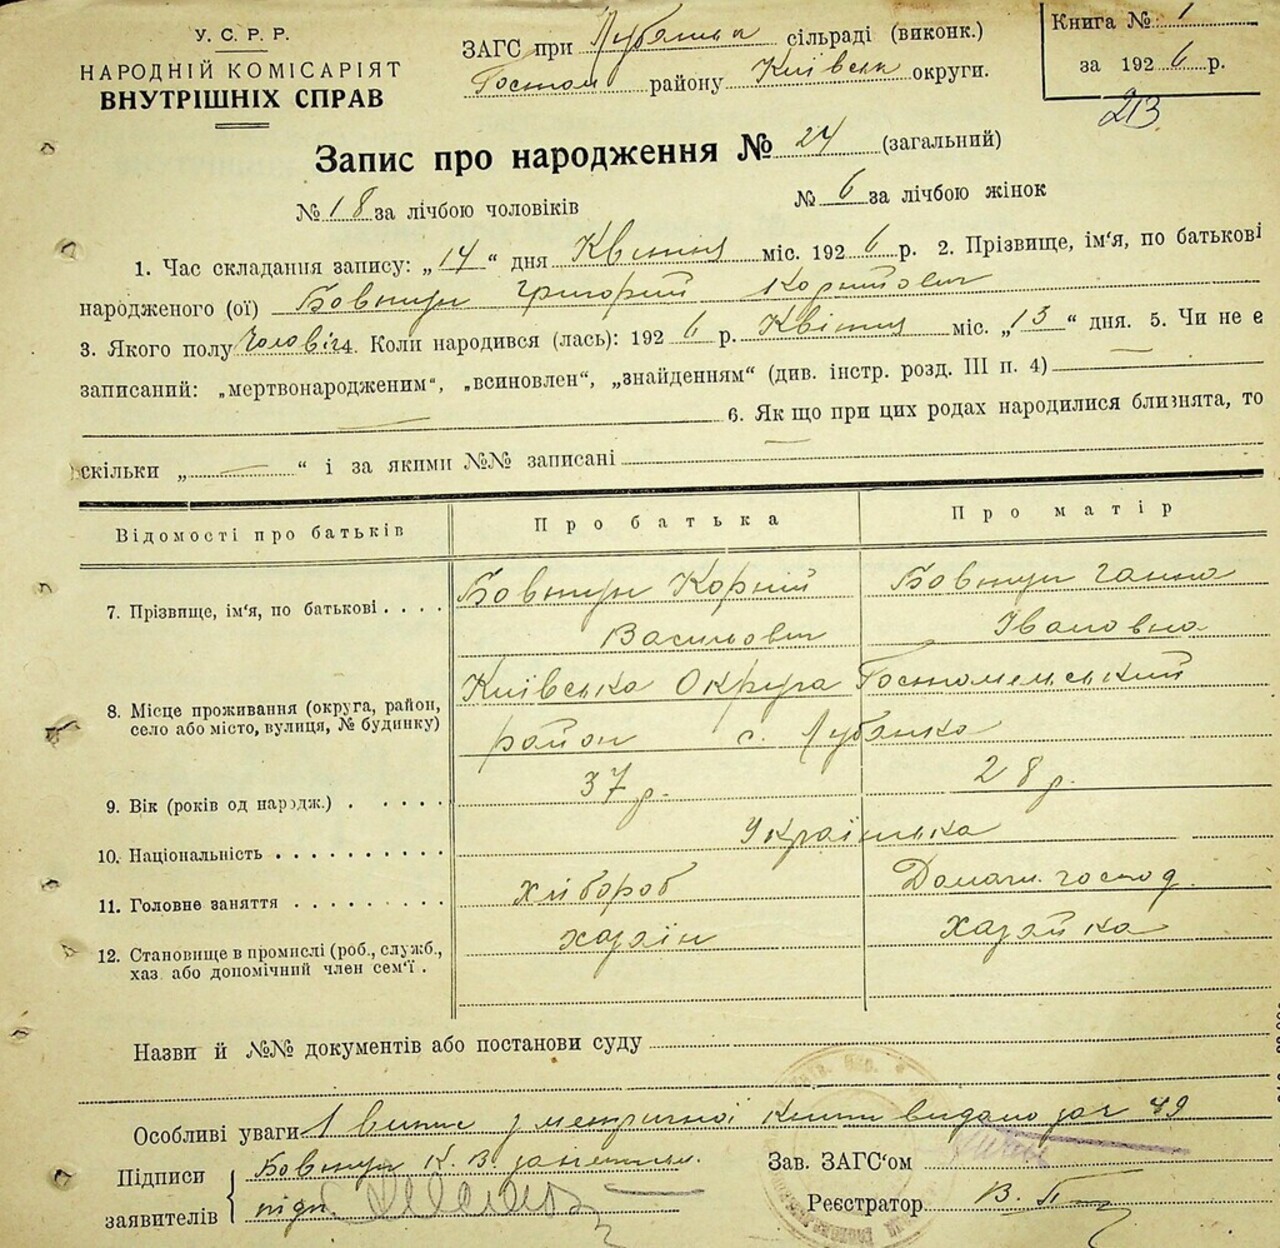 У. С. Р. Р.
НАРОДНІЙ КОМІСАРІЯТ
ВНУТРІШНІХ СПРАВ
ЗАГС при Лубянка сільраді (виконк.)
Гостом району Київськ округи.
Книга № 1
за 1926 р.
213
Запис про народження № 24 (загальний)
№ 18 за лічбою чоловіків № 6 за лічбою жінок
1. Час складання запису: „14“ дня Квітня міс. 1926 р. 2. Прізвище, ім'я, по батькові
народженого (ої) Бовкун Григорий Корнійович
3. Якого полу Чоловіч 4. Коли народився (лась): 1926 р. Квітня міс. „13“ дня. 5. Чи не є
записаний: „мертвонародженим“, „всиновлен“, „знайденням“ (див. інстр. розд. III п. 4) —
— 6. Як що при цих родах народилися близнята, то
скільки „ — “ і за якими №№ записані —
Відомості про батьків Про батька Про матір
7. Прізвище, ім'я, по батькові . . . . Бовкун Корній Бовкун Ганна
Васильович Івановна
8. Місце проживання (округа, район, село або місто, вулиця, № будинку) Київська Округа Гостомельський
район с. Лубянка
9. Вік (років од народж.) . . . . . 37 р. 28 р.
10. Національність . . . . . . . . . . Українська
11. Головне заняття . . . . . . . . . Хлібороб Домашн. господ.
12. Становище в промислі (роб., служб., хаз. або допомічний член сем'ї . хазяїн хазяйка
Назви й №№ документів або постанови суду
Особливі уваги 1 випис з метричної Книги видано за № 49
Підписи Бовкун К. В.
заявителів
Зав. ЗАГС'ом
Реєстратор В.